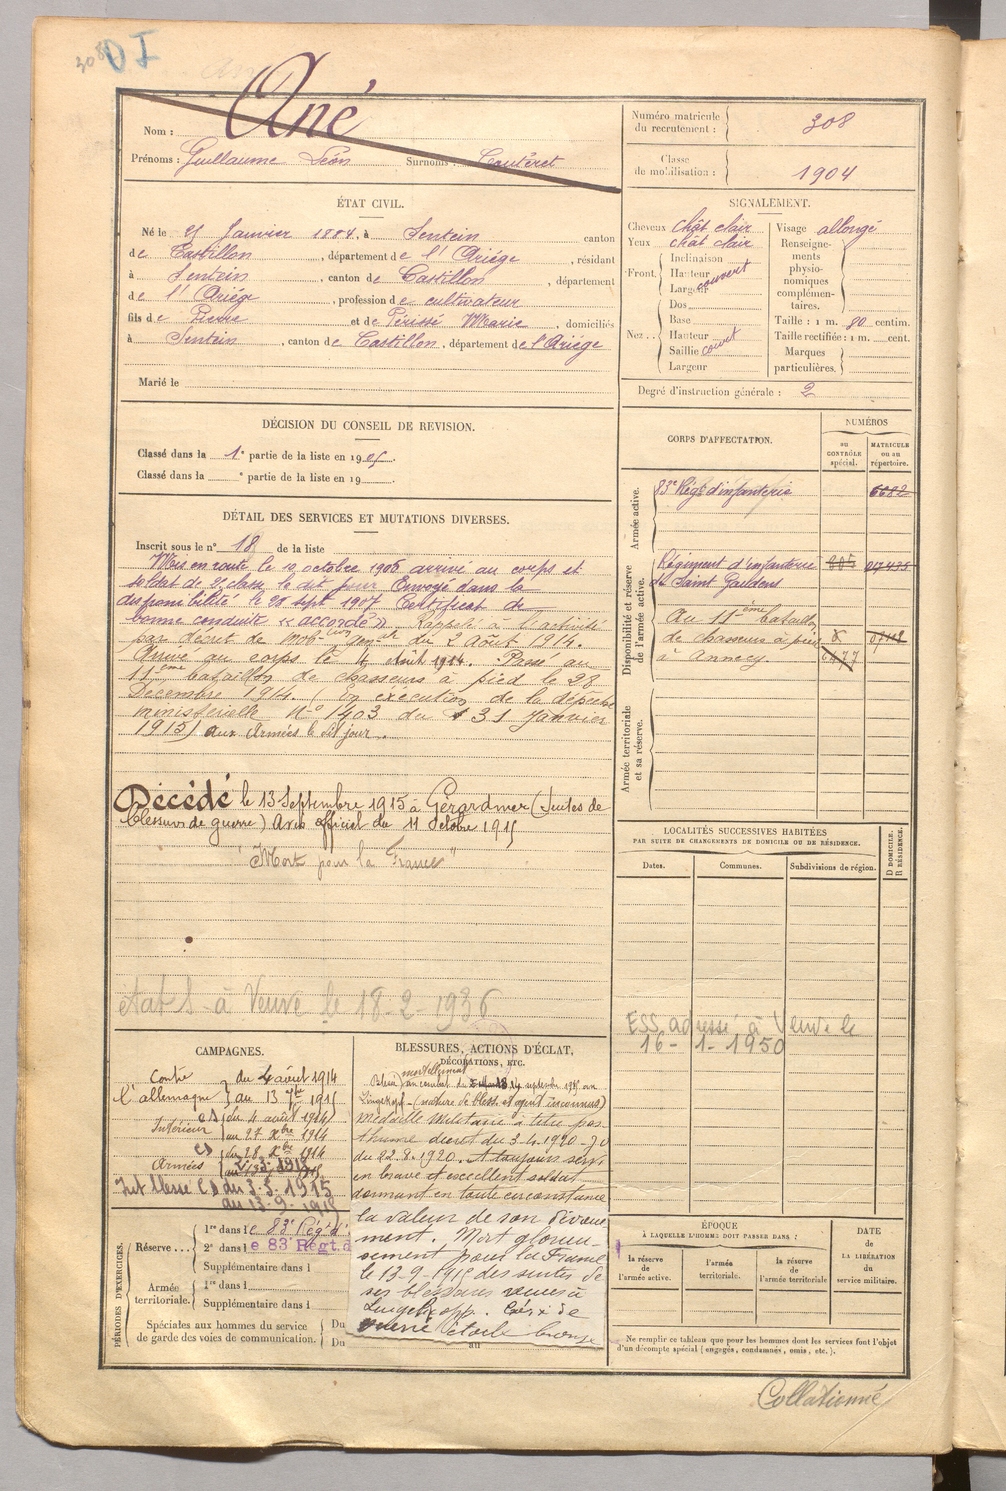 308
DI
Ané
Nom :
Prénoms : Guillaume Léon Surnoms : Cautèret
Numéro matricule du recrutement : 308
Classe de mobilisation : 1904
ÉTAT CIVIL.
Né le 21 Janvier 1884, à Sentein canton
de Castillon, département de l'Ariège, résidant
à Sentein, canton de Castillon, département
de l'Ariège, profession de cultivateur
fils de Pierre et de Périssé Marie, domiciliés
à Sentein, canton de Castillon, département de l'Ariège
Marié le
SIGNALEMENT.
Cheveux chât clair
Yeux chât clair
Front. Inclinaison
Hauteur
Largeur
couvert
Nez. Dos
Base
Hauteur
Saillie court
Largeur
Visage allongé
Renseignements physionomiques complémentaires.
Taille : 1 m. 80 centim.
Taille rectifiée : 1 m. cent.
Marques particulières.
Degré d'instruction générale : 2
DÉCISION DU CONSEIL DE REVISION.
Classé dans la 1e partie de la liste en 1905.
Classé dans la e partie de la liste en 19
DÉTAIL DES SERVICES ET MUTATIONS DIVERSES.
Inscrit sous le n° 18 de la liste
Mis en route le 10 octobre 1906 arrivé au corps et
soldat de 2e classe le dit jour Envoyé dans la
disponibilité le 28 sept 1907 Certificat de
bonne conduite « accordé » Rappelé à l'activité
par décret de mob-tion génale du 2 Août 1914.
Arrivé au corps le 4 Août 1914. Passé au
11ème bataillon de chasseurs à pied le 28
Décembre 1914. (En exécution de la dépêche
ministérielle N° 1403 du 31 janvier
1915) aux Armées le dit jour.
Décédé le 13 Septembre 1915 à Gérardmer (suites de
blessures de guerre) Avis officiel du 11 octobre 1915
"Mort pour la France"
état S à Veuve le 18-2-1936
CORPS D'AFFECTATION.
NUMÉROS
au CONTRÔLE spécial.
MATRICULE ou au répertoire.
Armée active.
83e Régt d'infanterie 6682
Disponibilité et réserve de l'armée active.
Régiment d'infanterie
de Saint Gaudens
Au 11ème bataillon
de chasseurs à pied
à Annecy. 6477
Armée territoriale et sa réserve.
LOCALITÉS SUCCESSIVES HABITÉES
PAR SUITE DE CHANGEMENTS DE DOMICILE OU DE RÉSIDENCE.
Dates. Communes. Subdivisions de région. D DOMICILE. R RÉSIDENCE.
ESS adressé à Veuve le
16-1-1950
CAMPAGNES.
Contre l'allemagne
du 4 août 1914
au 13 7bre 1915
Intérieur CS du 4 août 1914
au 27 Xbre 1914
Armées CD du 28 Xbre 1914
Int blessé CD du 3.5.1915
au 13-9-1915
BLESSURES, ACTIONS D'ÉCLAT,
DÉCORATIONS, ETC.
Blessé mortellement au combat du septembre 1915 au
Lingekopf (nature de bless et agent inconnus)
Médaille militaire à titre pos-
thume décret du 3-4-1920 - JO
du 22.8.1920. A toujours servi
en brave et excellent soldat
donnant en toute circonstance
la valeur de son dévoue-
ment. Mort glorieu-
sement pour la France
le 13-9-1915 des suites de
ses blessures reçues à
Croix de
guerre étoile bronze
PÉRIODES D'EXERCICES.
Réserve... 1re dans le 83e Régt d'
2e dans le 83e Régt.d
Supplémentaire dans l
Armée territoriale. 1re dans l
Supplémentaire dans l
Spéciales aux hommes du service
de garde des voies de communication.
Du
Du au
ÉPOQUE
À LAQUELLE L'HOMME DOIT PASSER DANS :
la réserve de l'armée active.
l'armée territoriale.
la réserve de l'armée territoriale
DATE de LA LIBÉRATION du service militaire.
Ne remplir ce tableau que pour les hommes dont les services font l'objet
d'un décompte spécial (engagés, condamnés, omis, etc.).
Collationné